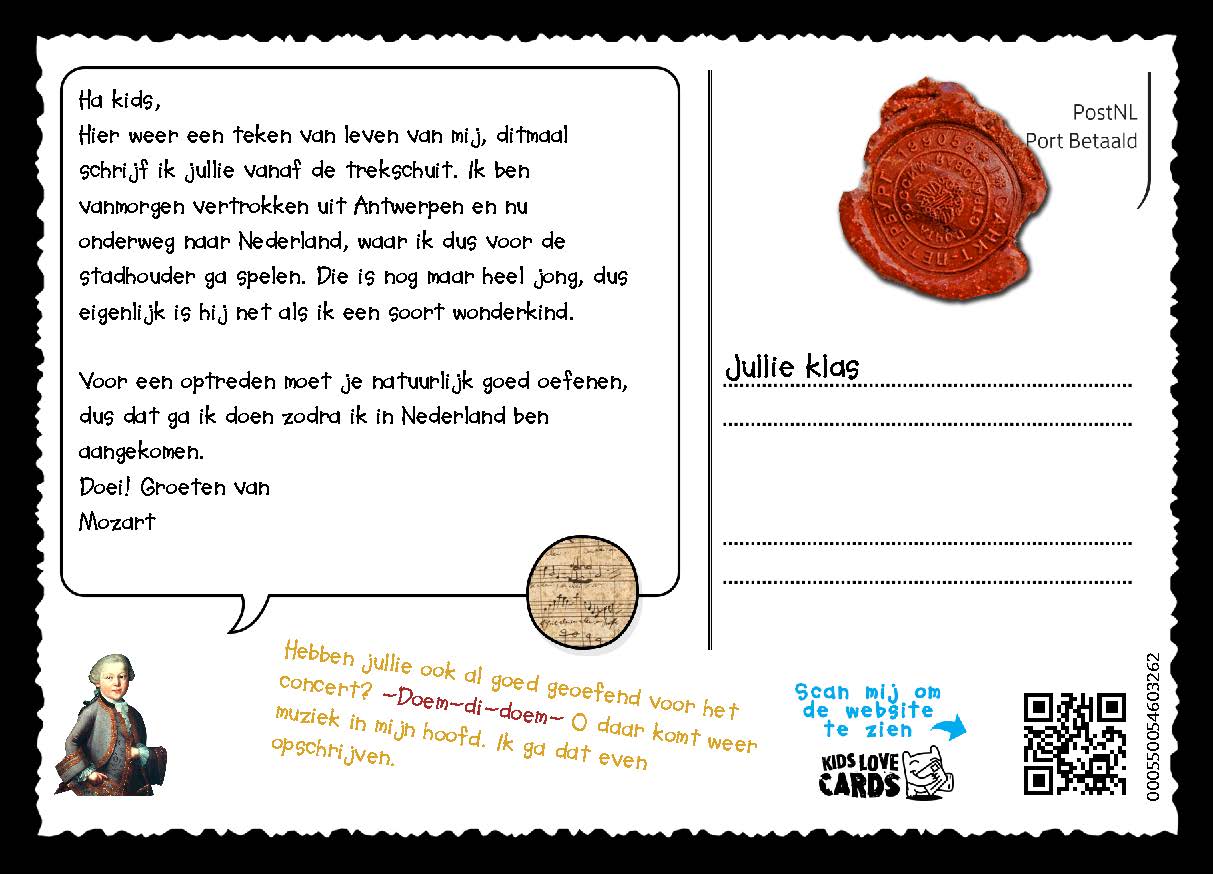 Ha kids,
Hier weer een teken van leven van mij, ditmaal
schrijf ik jullie vanaf de trekschuit. Ik ben
vanmorgen vertrokken uit Antwerpen en nu
onderweg naar Nederland, waar ik dus voor de
stadhouder ga spelen. Die is nog maar heel jong, dus
eigenlijk is hij net als ik een soort wonderkind.
Voor een optreden moet je natuurlijk goed oefenen,
dus dat ga ik doen zodra ik in Nederland ben
aangekomen.
Doei! Groeten van
Mozart
Hebben jullie ook al goed geoefend voor het
concert? ~Doem~di~doem~ O daar komt weer
muziek in mijn hoofd. Ik ga dat even
opschrijven.
PostNL
Port Betaald
Jullie klas
Scan mij om
de website
te zien
KIDS LOVE
CARDS
000550054603262